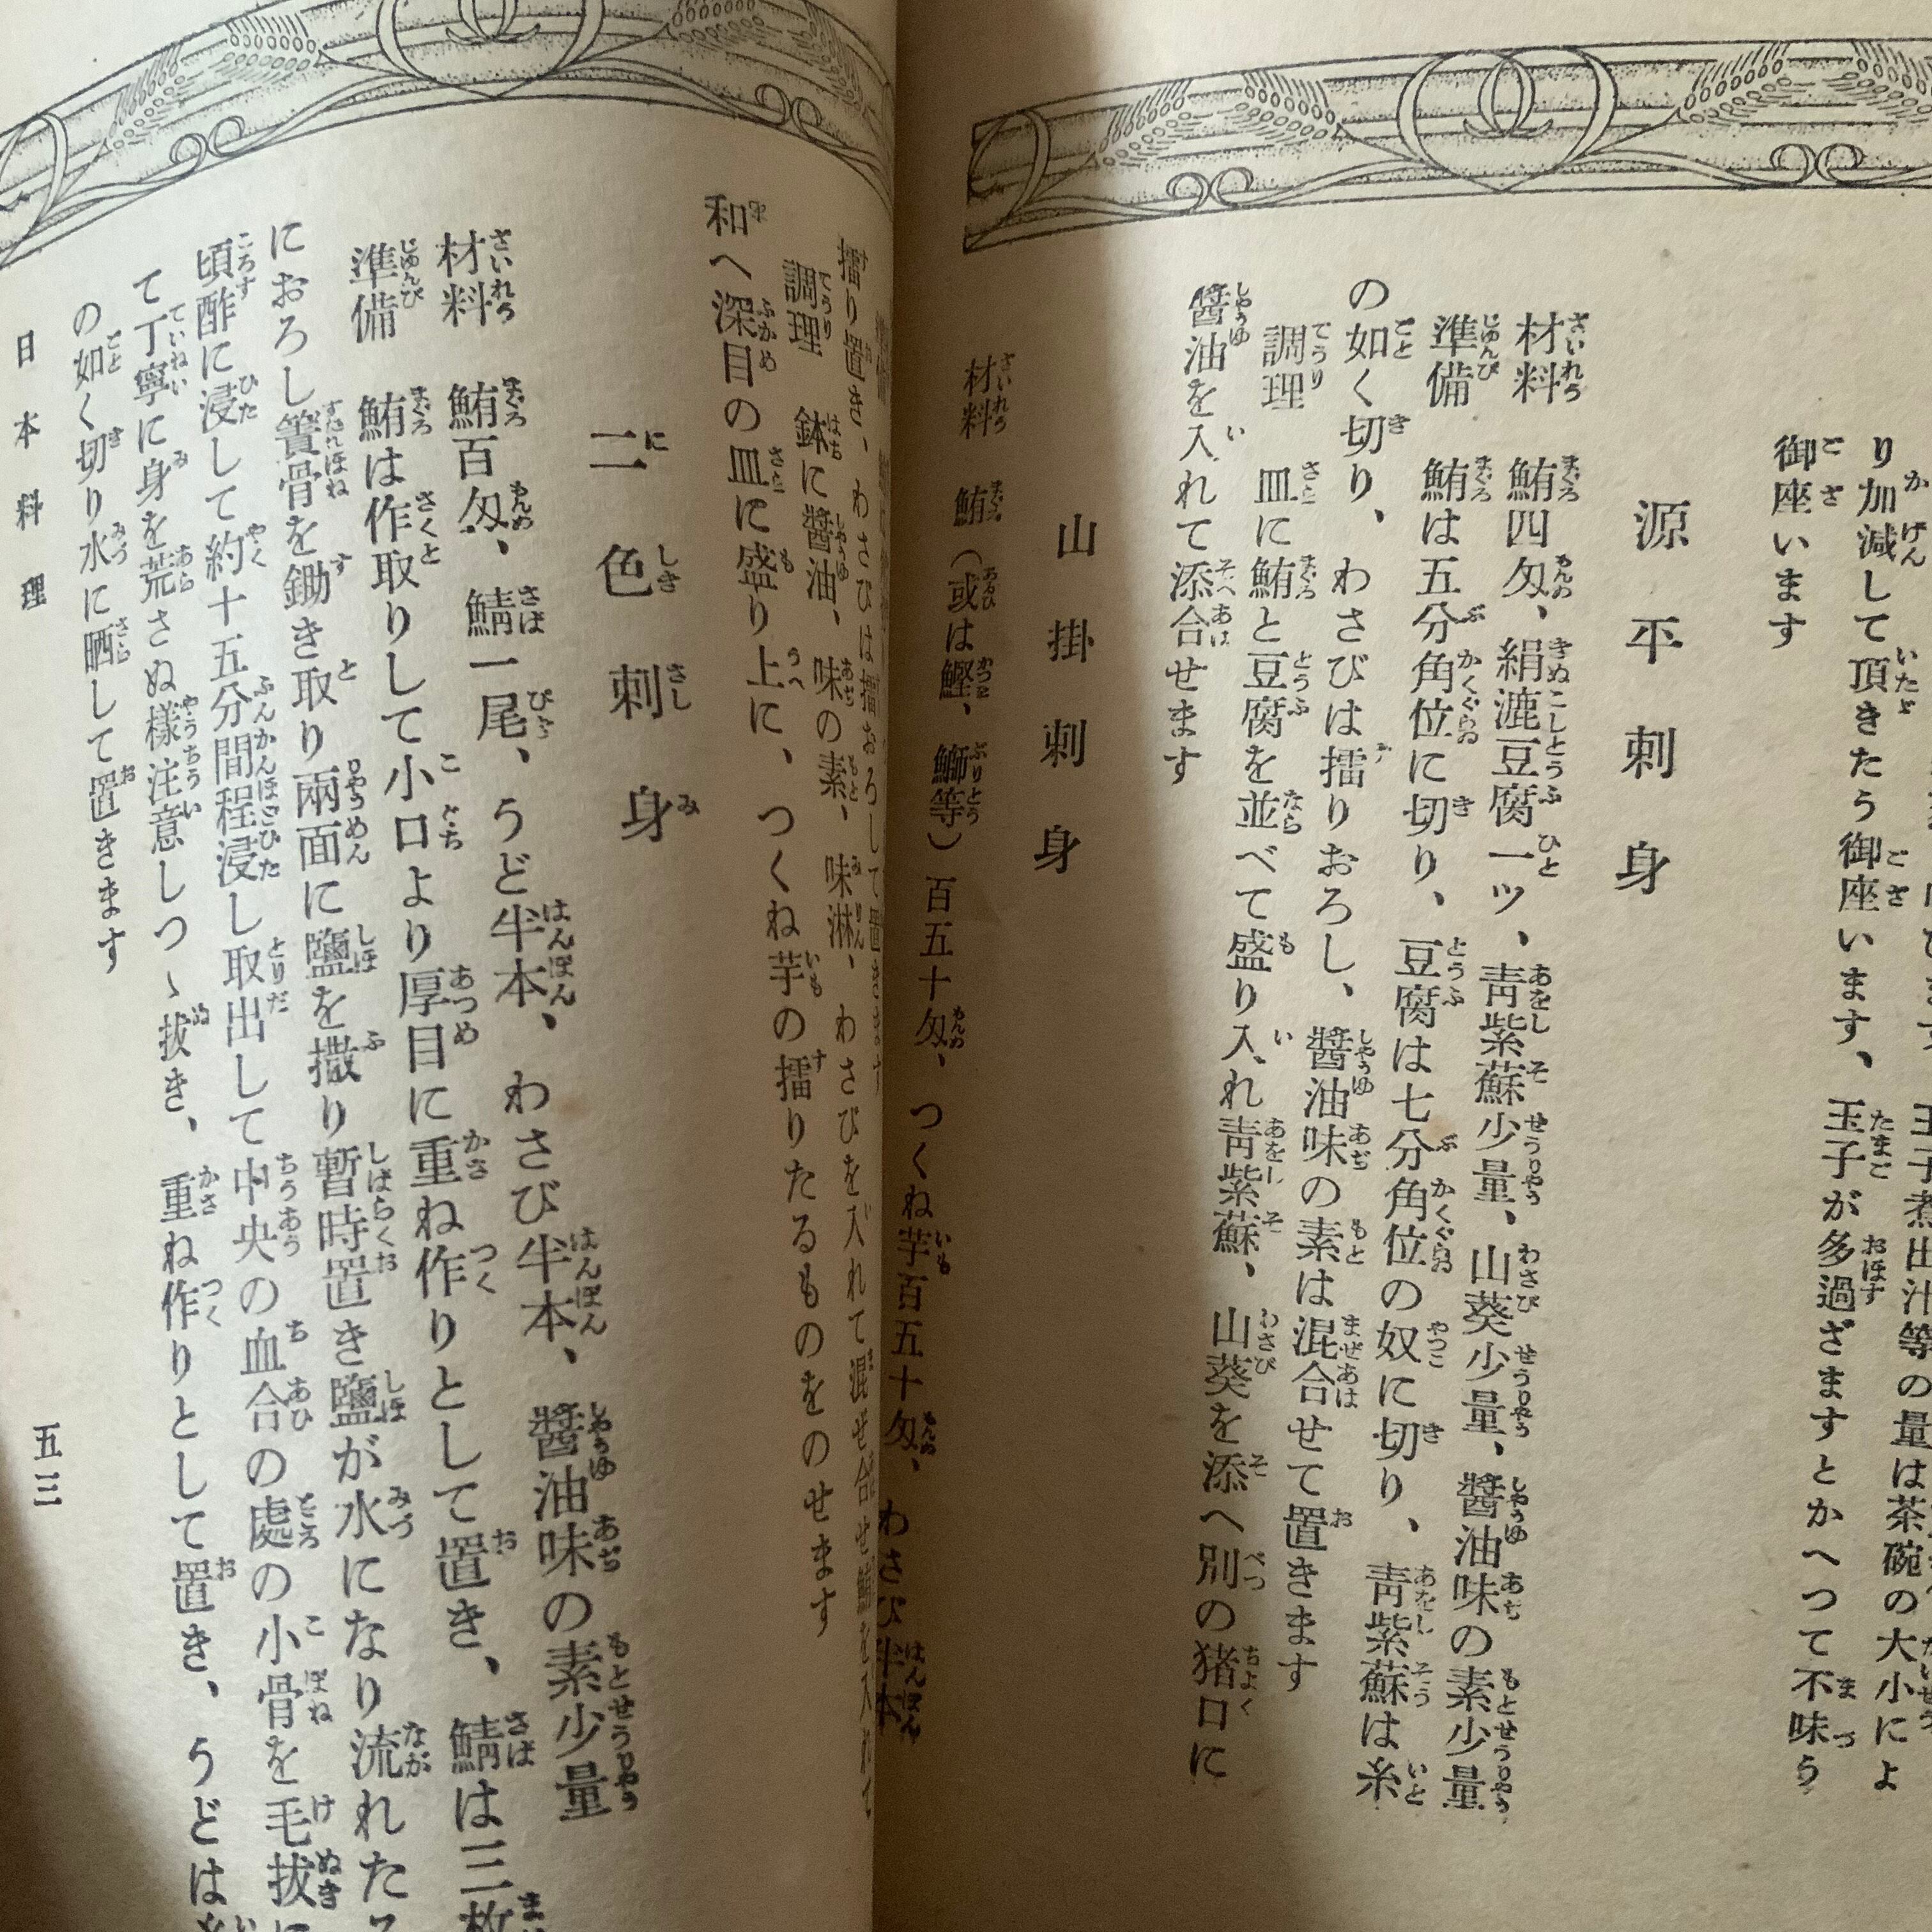 玉子煮出汁等の量は茶碗の大小によ
り加減して頂きたう御座います、玉子が多過ざますとかへつて不味う
御座います
源平刺身
材料 鮪四匁、絹漉豆腐一ツ、靑紫蘇少量、山葵少量、醬油味の素少量
準備 鮪は五分角位に切り、豆腐は七分角位の奴に切り、靑紫蘇は糸
の如く切り、わさびは擂りおろし、醬油味の素は混合せて置きます
調理 皿に鮪と豆腐を並べて盛り入れ靑紫蘇、山葵を添へ別の猪口に
醬油を入れて添合せます
山掛刺身
材料 鮪(或は鰹、鰤等)百五十匁、つくね芋百五十匁、わさび半本
擂り置き、わさびは擂おろして置きます
調理 鉢に醬油、味の素、味淋、わさびを入れて混ぜ合せ鮪を入れて
和へ深目の皿に盛り上に、つくね芋の擂りたるものをのせます
二色刺身
材料 鮪百匁、鯖一尾、うど半本、わさび半本、醬油味の素少量
準備 鮪は作取りして小口より厚目に重ね作りとして置き、鯖は三枚
におろし簀骨を鋤き取り兩面に鹽を撒り暫時置き鹽が水になり流れた
頃酢に浸して約十五分間程浸し取出して中央の血合の處の小骨を毛拔に
て丁寧に身を荒さぬ樣注意しつゝ拔き、重ね作りとして置き、うどは糸
の如く切り水に晒して置きます
日本料理
五三